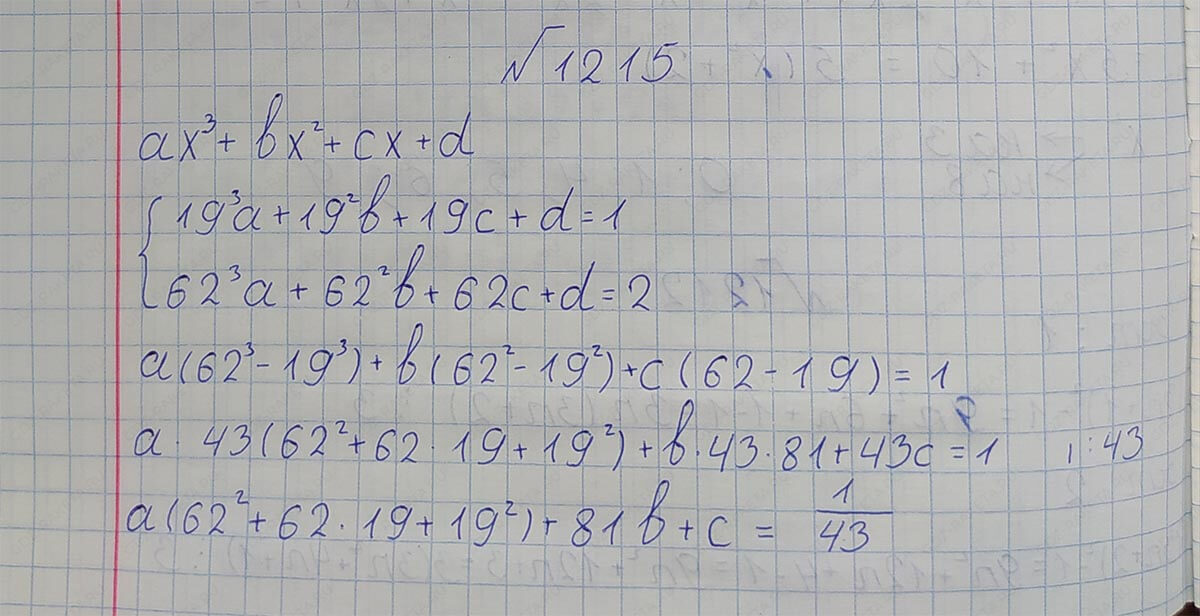 №1215
ax³ + bx² + cx + d
{ 19³a + 19²b + 19c + d = 1
{ 62³a + 62²b + 62c + d = 2
a(62³ - 19³) + b(62² - 19²) + c(62 - 19) = 1
a · 43(62² + 62 · 19 + 19²) + b · 43 · 81 + 43c = 1 | : 43
a(62² + 62 · 19 + 19²) + 81b + c = 1/43